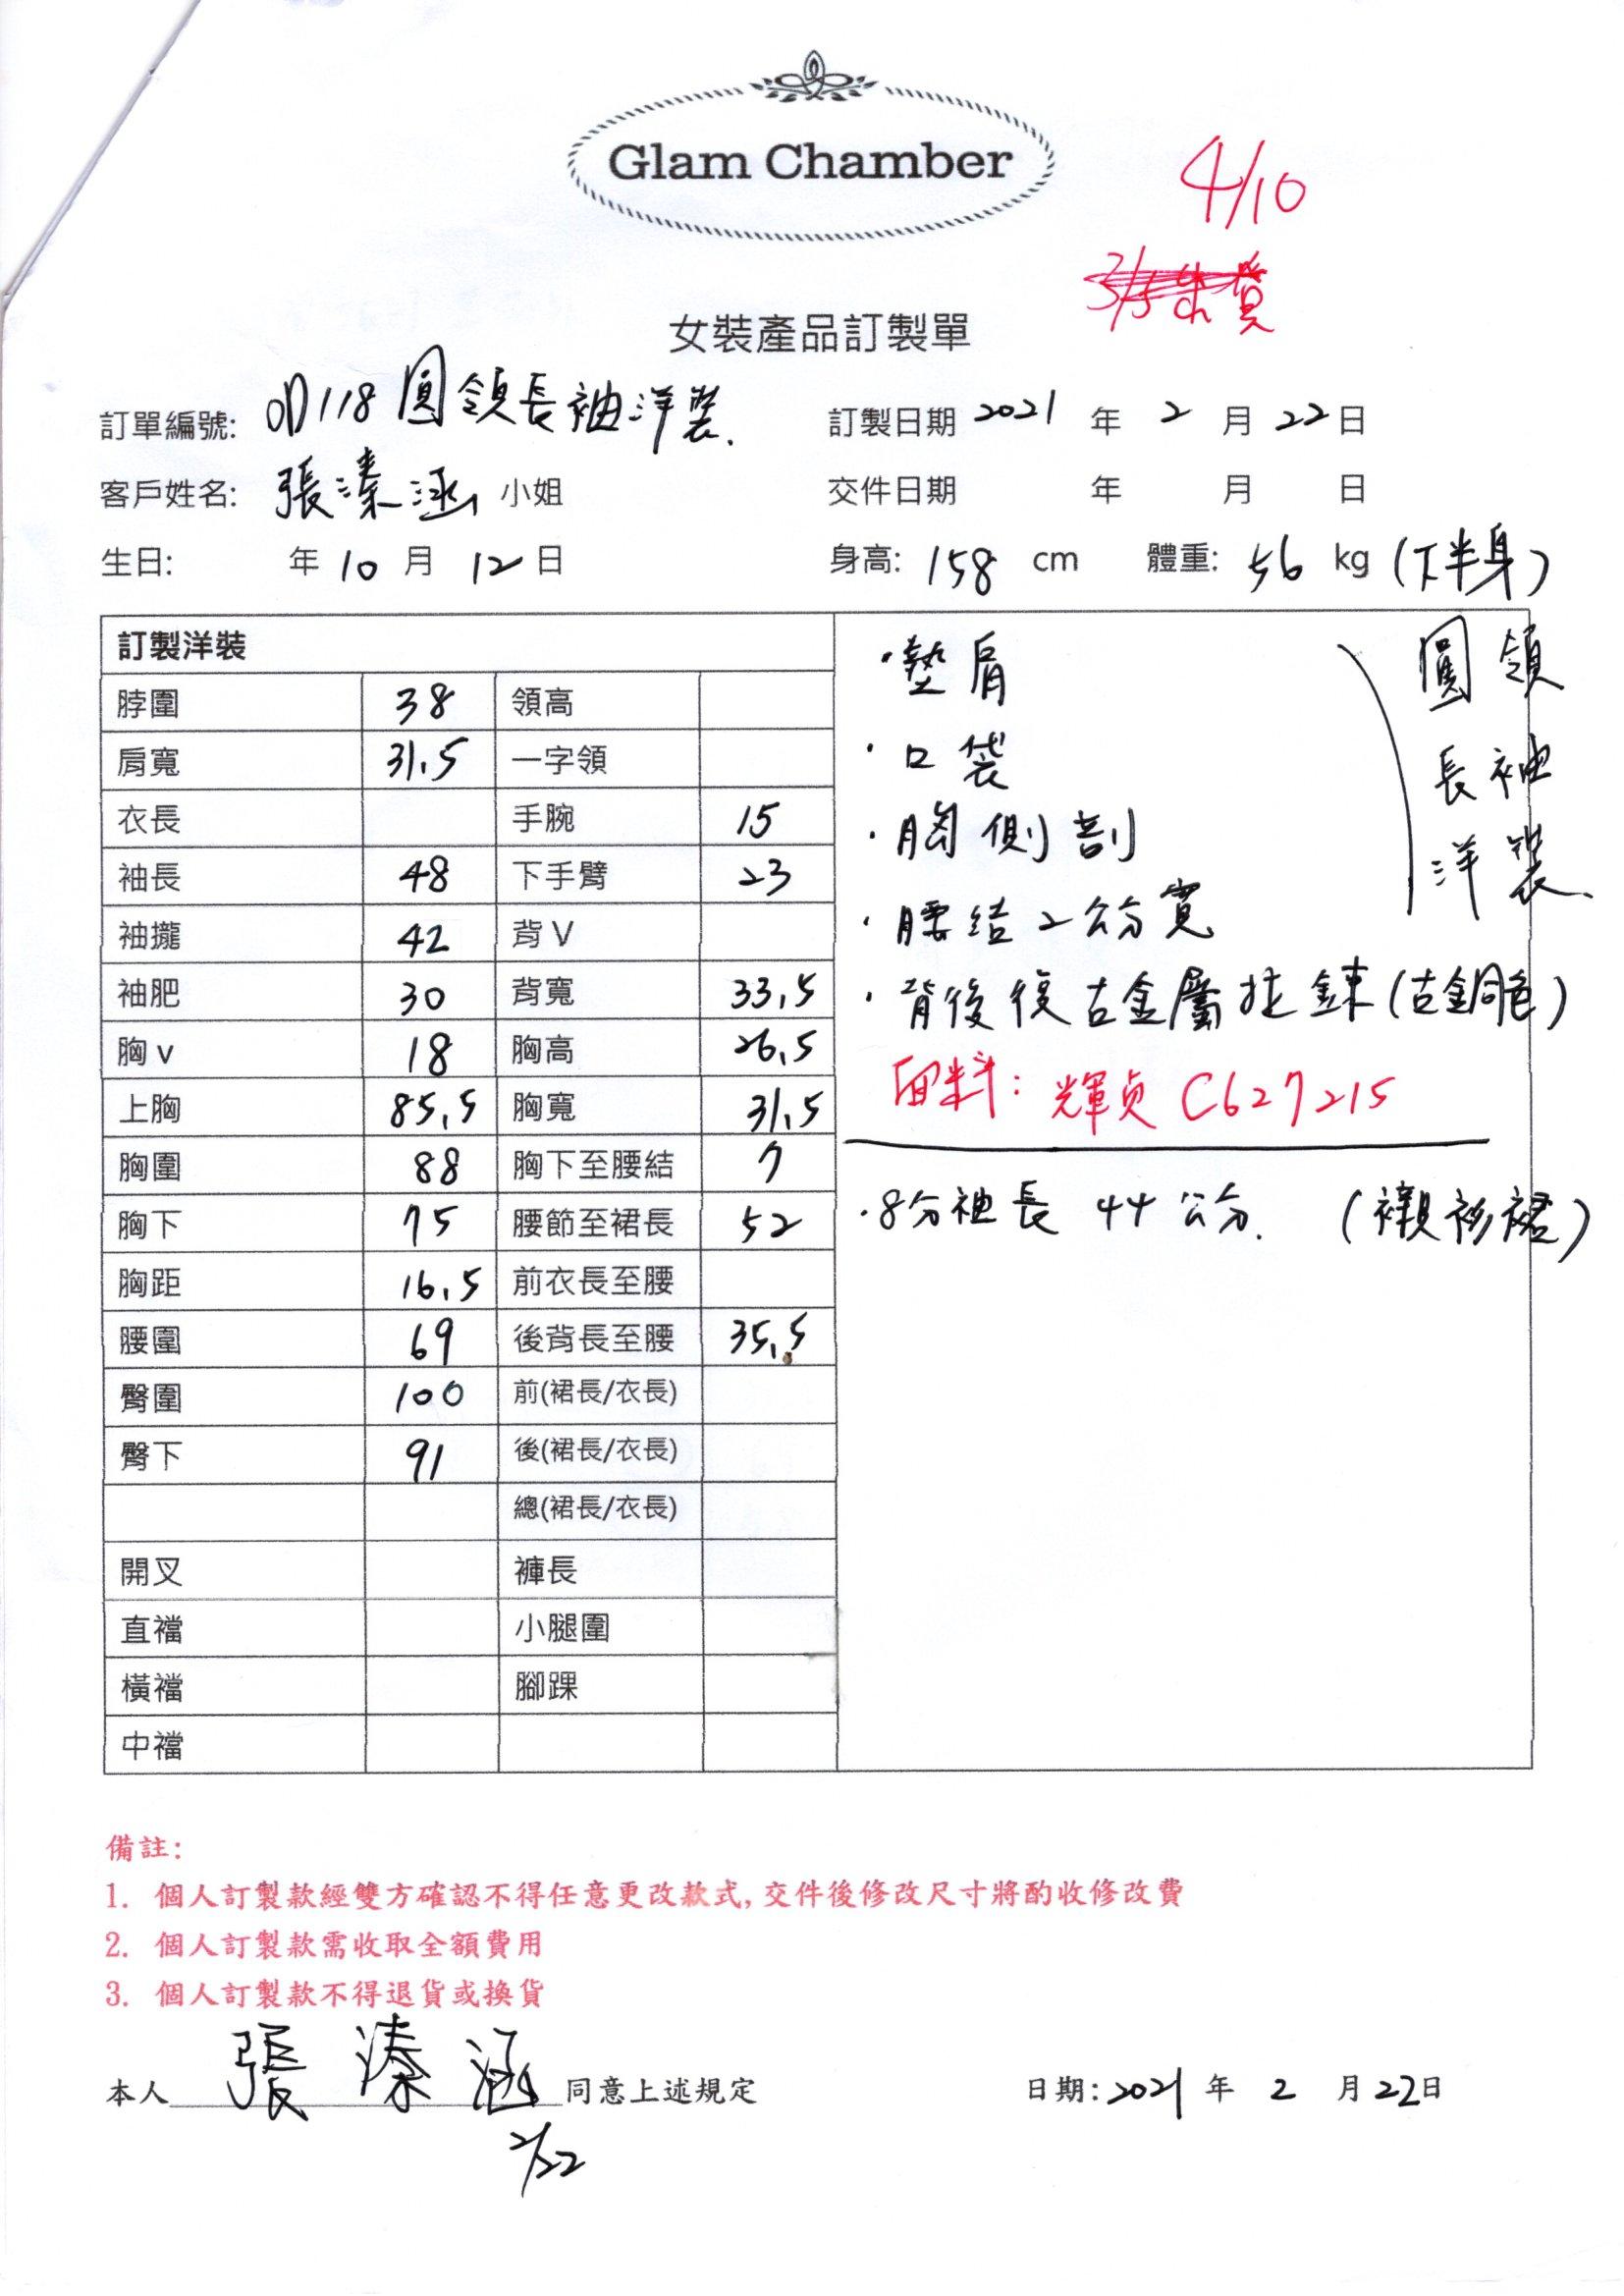 Glam Chamber
4/10
3/5出貨
女裝產品訂製單
訂單編號: 118 圓領長袖洋裝. 訂製日期 2021 年 2 月 22 日
客戶姓名: 張溱涵 小姐 交件日期 年 月 日
生日: 年 10 月 12 日 身高: 158 cm 體重: 56 kg (下半身)
訂製洋裝
脖圍 38 領高
肩寬 31.5 一字領
衣長 手腕 15
袖長 48 下手臂 23
袖攏 42 背V
袖肥 30 背寬 33.5
胸v 18 胸高 26.5
上胸 85.5 胸寬 31.5
胸圍 88 胸下至腰結 7
胸下 75 腰節至裙長 52
胸距 16.5 前衣長至腰
腰圍 69 後背長至腰 35.5
臀圍 100 前(裙長/衣長)
臀下 91 後(裙長/衣長)
總(裙長/衣長)
開叉 褲長
直襠 小腿圍
橫襠 腳踝
中襠
·墊肩
·口袋
·胸側剖
·腰結2公分寬
·背後復古金屬拉鍊(古銅色)
圓領
長袖
洋裝.
面料: 輝貞 C627215
·8分袖長 44公分. (襯衫裙)
備註:
1. 個人訂製款經雙方確認不得任意更改款式,交件後修改尺寸將酌收修改費
2. 個人訂製款需收取全額費用
3. 個人訂製款不得退貨或換貨
本人 張溱涵 同意上述規定 日期: 2021 年 2 月 22 日
2/22